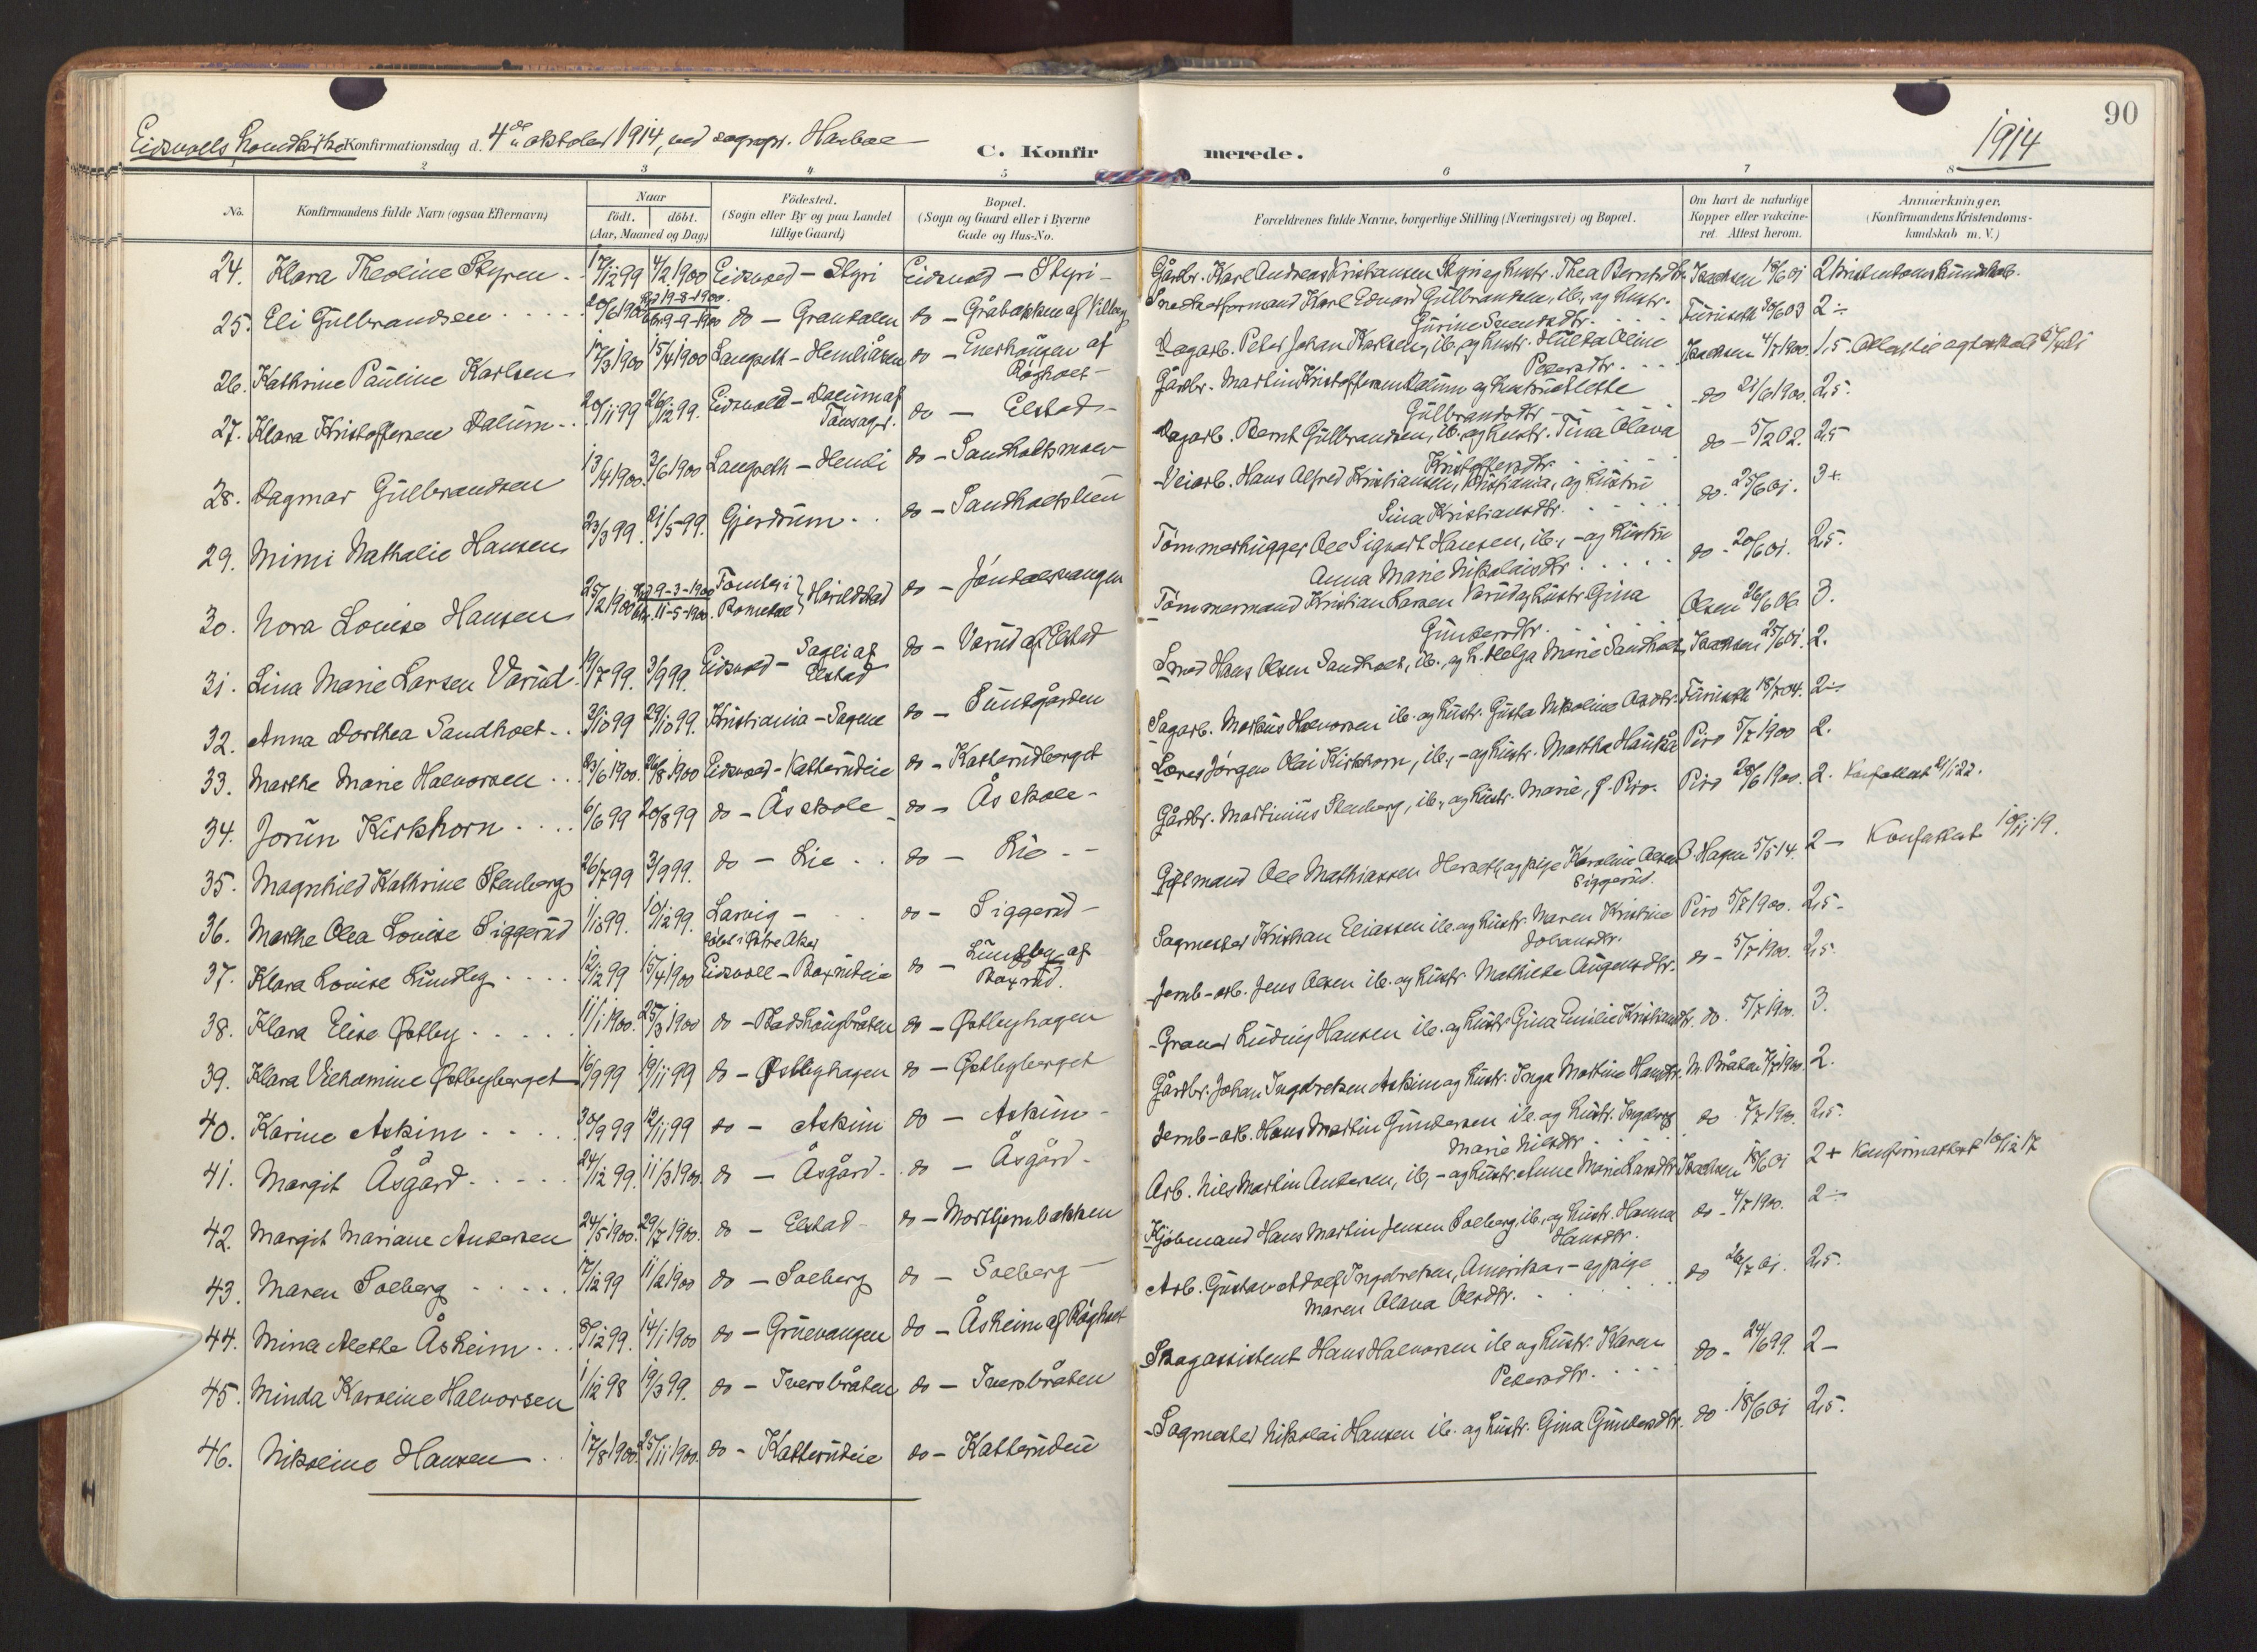 90
1914
Eidsvolls hovedkirke Konfirmationsdag d. 4de oktober 1914, ved sognepr. Harboe
C. Konfirmerede.
1 2 3 4 5 6 7 8
No. Konfirmandens fulde Navn (ogsaa Efternavn) Naar født. døbt. (Aar, Maaned og Dag) Fødested. (Sogn eller By og paa Landet tillige Gaard) Bopæl. (Sogn og Gaard eller i Byerne Gade og Hus-No. Forældrenes fulde Navne, borgerlige Stilling (Næringsvei) og Bopæl. Om havt de naturlige Kopper eller vaccineret. Attest herom. Anmærkninger. (Konfirmandens Kristendomskundskab m. V.)
24. Klara Theoline Styren 17/12 99 4/2 1900 Eidsvold - Styri Eidsvold - Styri Gårdbr. Karl Andreas Kristiansen Styri og hustr. Thea Berntsdtr. Isachsen 18/6 01 2 kristendomskundskab.
25. Eli Gulbrandsen 20/6 1900 19-8-1900 9-9-1900 do - Grandalen do - Gråbakken af Vilberg Snedkerformand Karl Edvard Gulbrandsen, ib., og hustr. Gurine Svendsdtr. Furuseth 30/6 03 2÷
26. Kathrine Pauline Karlsen 17/3 1900 15/4 1900 Langseth - Hemliåsen do - Enerhaugen af Røgholt Dagarb. Peter Johan Karlsen, ib., og hustr. Hulda Oline Pedersdtr. Isachsen 4/7 1900. 1,5.
27. Klara Kristoffersen Dalum 20/11 99 26/12 99. Eidsvold - Dalum af Tønsager. do - Elstad Gårdbr. Martin Kristoffersen Dalum og hustru Alette Gulbrandsdtr. do 21/6 1900. 2,5.
28. Dagmar Gulbrandsen 13/4 1900. 3/6 1900 Langseth - Hemli do - Sandholtsmoen Dagarb. Bernt Gulbrandsen, ib. og hustr. Tina Olava Kristoffersdtr. do - 5/2 02. 2,5
29. Mimi Nathalie Hansen 23/3 99. 21/5 99. Gjerdrum do - Sandholtshus Veiarb. Hans Alfred Kristiansen, Kristiania, og hustru Lina Kristiansdtr. do. 25/6 01. 3+
30. Nora Louise Hansen 25/2 1900 9-3-1900 11-5-1900. Tomter i Romedal Harildstad do - Jøndalsvangen Tømmerhugger Ole Sigvart Hansen, ib., - og hustru Anna Marie Nikolaisdtr. do - 20/6 01. 2,5.
31. Lina Marie Larsen Varud 19/7 99. 3/9 99. Eidsvold - Sagli af Elstad do - Varud af Elstad Tømmermand Kristian Larsen Varud og hustr. Gina Gundersdtr. Olsen 26/6 06 3.
32. Anna Dorthea Sandholt 3/10 99 29/10 99. Kristiania - Sagene do - Sundgården Smed Hans Olsen Sandholt, ib., og h. Helga Marie Sandholt Isachsen 25/6 01. 2.
33. Marthe Marie Halvorsen 23/6 1900. 26/8 1900 Eidsvold - Katterudeie do - Katterudberget Sagarb. Markus Halvorsen ib. og hustr. Gusta Nikoline Olsdtr. Furuseth 18/7 04. 2÷
34. Jorun Kirkhorn 6/6 99 20/8 99 do - Ås skole do - Ås skole Lærer Jørgen Olai Kirkhorn, ib., - og hustr. Martha Haukås Piro 5/7 1900 2.
35. Magnhild Kathrine Stenberg 26/7 99 3/9 99. do - Lie do - Lie Gårdbr. Martinius Stenberg, ib., og hustr. Marie, f. Piro. Piro 28/6 1900. 2. Konfattest 21/1 22.
36. Marthe Olea Louise Siggerud 1/10 99. 10/12 99. Larvig - døbt i Østre Aker do - Siggerud Giftmand Ole Mathiassen Herseth og pige Karoline Olsen Siggerud. B. Hagen 5/5 14. 2- Konfattest 10/11 19.
37. Klara Louise Lundby 12/12 99 15/4 1900 Eidsvoll - Boxrudeie do - Lundby af Boxrud. Sagmester Kristian Eliassen ib. og hustr. Maren Kristine Johansdtr. Piro 5/7 1900. 2,5-
38. Klara Elise Østby 11/1 1900. 25/3 1900 do - Badshaugbråten do - Østbyhagen Jernb-arb. Jens Olsen ib. og hustr. Mathilde Augensdtr. do - 5/7 1900. 2,5.
39. Klara Vilhelmine Østbyberget 16/9 99 19/11 99 do - Østbyhagen do - Østbyberget Graver Ludvig Hansen ib. og hustr. Gina Emilie Kristiansdtr. do. 5/7 1900. 3.
40. Karine Askim 30/9 99 12/11 99 do - Askim do - Askim Gårdbr. Johan Ingebretsen Askim og hustr. Inga Martine Hansdtr. M. Bråten 7/7 1900. 2.
41. Margit Åsgård 24/12 99. 11/3 1900. do - Åsgård do - Åsgård Jernb-arb. Hans Martin Gundersen ib. og hustr. Ingeborg Marie Nilsdtr. do 7/7 190. 2,5.
42. Margit Mariane Andersen 24/5 1900. 29/7 1900. do - Elstad do - Morttjernbakken Arb. Nils Martin Andersen, ib., - og hustr. Anne Marie Larsdtr. Isachsen 18/6 01 2+ Konfirmattest 10/12 17
43. Maren Solberg 17/12 99 11/2 1900 do - Solberg do - Solberg Kjøbmand Hans Martin Jensen Solberg, ib., og hustr. Hanna Hansdtr. do - 4/7 1900. 2÷
44. Mina Alette Åsheim 8/12 99. 14/1 1900 do - Gruevangen do - Åsheim af Røgholt Arb. Gustav Adolf Ingebretsen, Amerika, - og pige Maren Olava Olsdtr. do 26/7 01. 2,5.
45. Minda Karoline Halvorsen 1/12 98 19/3 99. do - Iversbråten do - Iversbråten Skogassistent Hans Halvorsen ib. og hustr. Karen Pedersdtr. do - 24/6 99. 2-
46. Nikoline Hansen 17/8 1900. 25/11 1900. do - Katterudeie do - Katterudeie Sagmester Nikolai Hansen ib. og hustr. Gina Gundersdtr. do - 18/6 01 2,5.